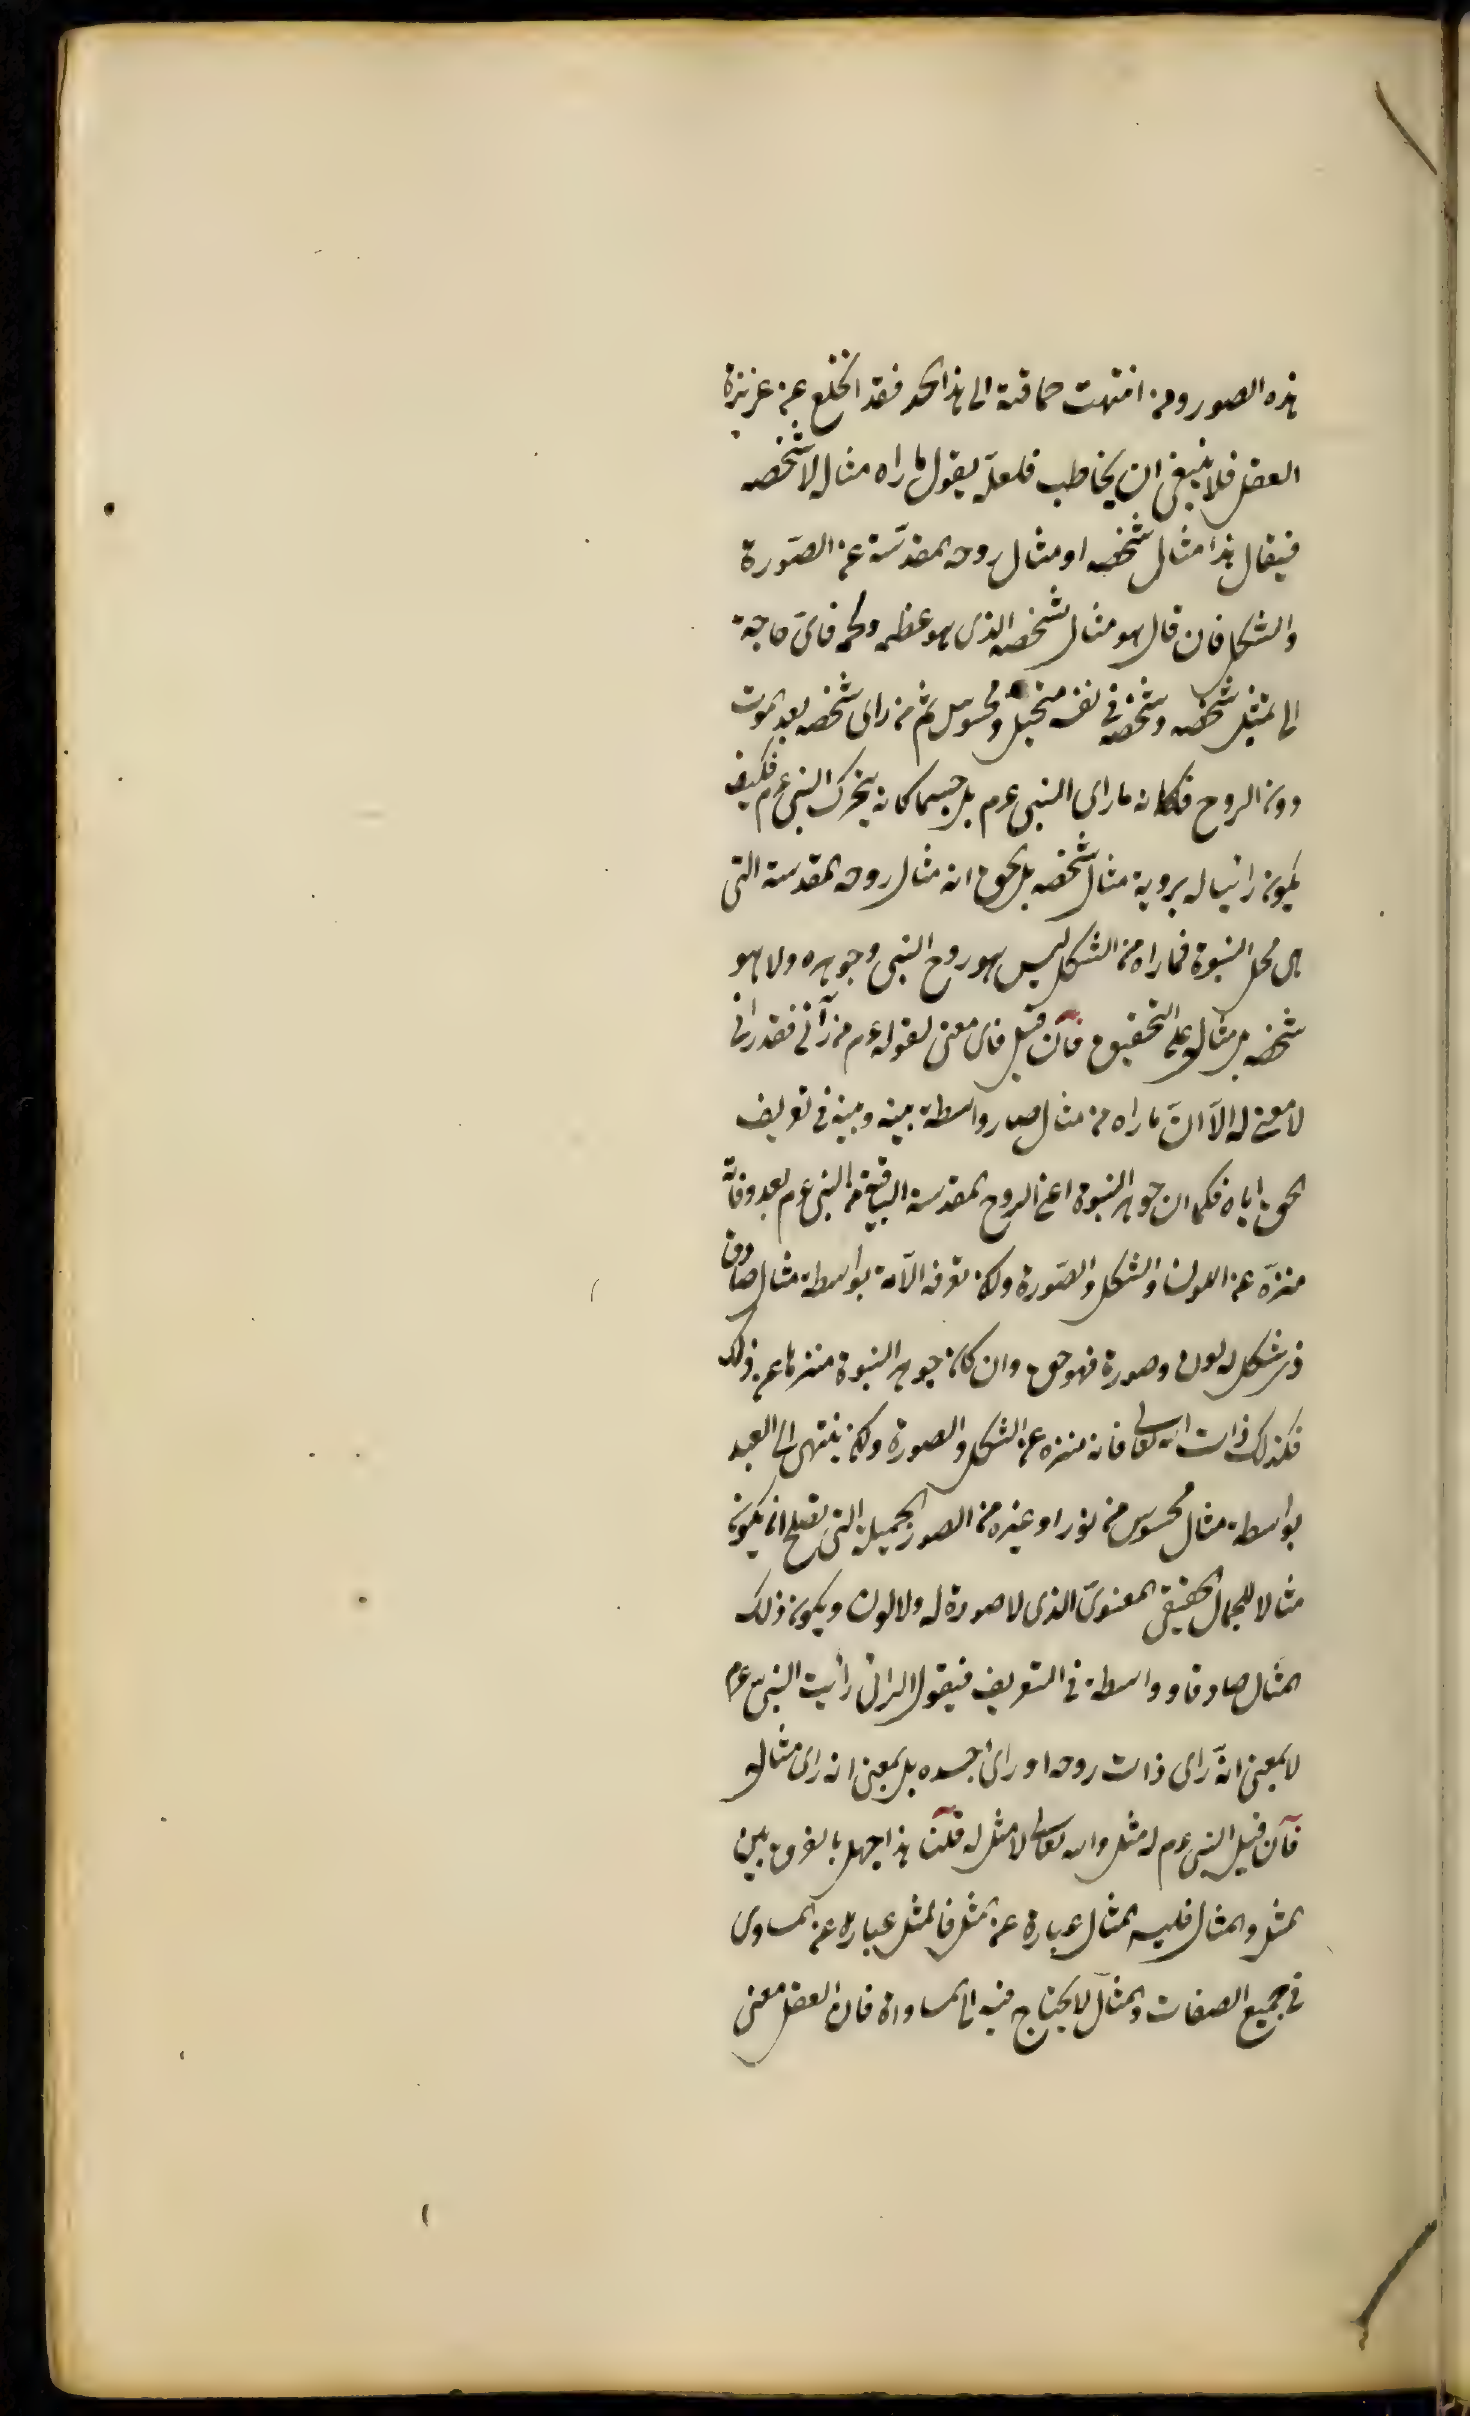 هذه الصور ومن انتهت حماقته الى هذا الحد فقد انخلع عن غريزة
العقل فلا ينبغى ان يخاطب فلعله يقول ما راه مثال لا شخصه
فيقال هذا مثال شخصه او مثال روحه المقدسة عن الصورة
والشكل فان قال هو مثال لشخصه الذى هو عظمه ولحمه فاى حاجة
الى تمثيل شخصه وشخصه فى نفسه متخيل ومحسوس ثم من راى شخصه بعد الموت
دون الروح فكانه ما راى النبى عم بل جسما كان يتحرك النبى عم فكيف
يكون رائيا له برؤية مثال شخصه بل الحق انه مثال روحه المقدسة التى
هى محل النبوة فما راه من الشكل ليس هو روح النبى وجوهره ولا هو
شخصه بل مثاله على التحقيق فان قيل فاى معنى لقوله عم من رآنى فقد رانى
لا معنى له الا ان ما راه من مثال صار واسطة بينه وبينه فى تعريف
الحق اياه فكما ان جوهر النبوة اعنى الروح المقدسة الباقية من النبى عم بعد وفاته
منزه عن اللون والشكل والصورة ولكن تعرفه الامة بواسطة مثال صادق
ذى شكل له لون وصورة فهو حق وان كان جوهر النبوة منزها عن ذلك
فكذلك ذات الله تعالى فانه منزه عن الشكل والصورة ولكن ينتهى الى العبد
بواسطة مثال محسوس من نور او غيره من الصور الجميلة التى تصلح ان يكون
مثالا للجمال الحقيقى المعنوى الذى لا صورة له ولا لون ويكون ذلك
المثال صادقا وواسطة فى التعريف فيقول الرائى رايت النبى عم
لا بمعنى انه راى ذات روحه او راى جسده بل بمعنى انه راى مثاله
فان قيل النبى عم له مثل والله تعالى لا مثل له قلنا هذا جهل بالفرق بين
المثل والمثال فليس المثال عبارة عن المثل فالمثل عبارة عن المساوى
فى جميع الصفات والمثال لا يحتاج فيه الى المساواة فان العقل معنى